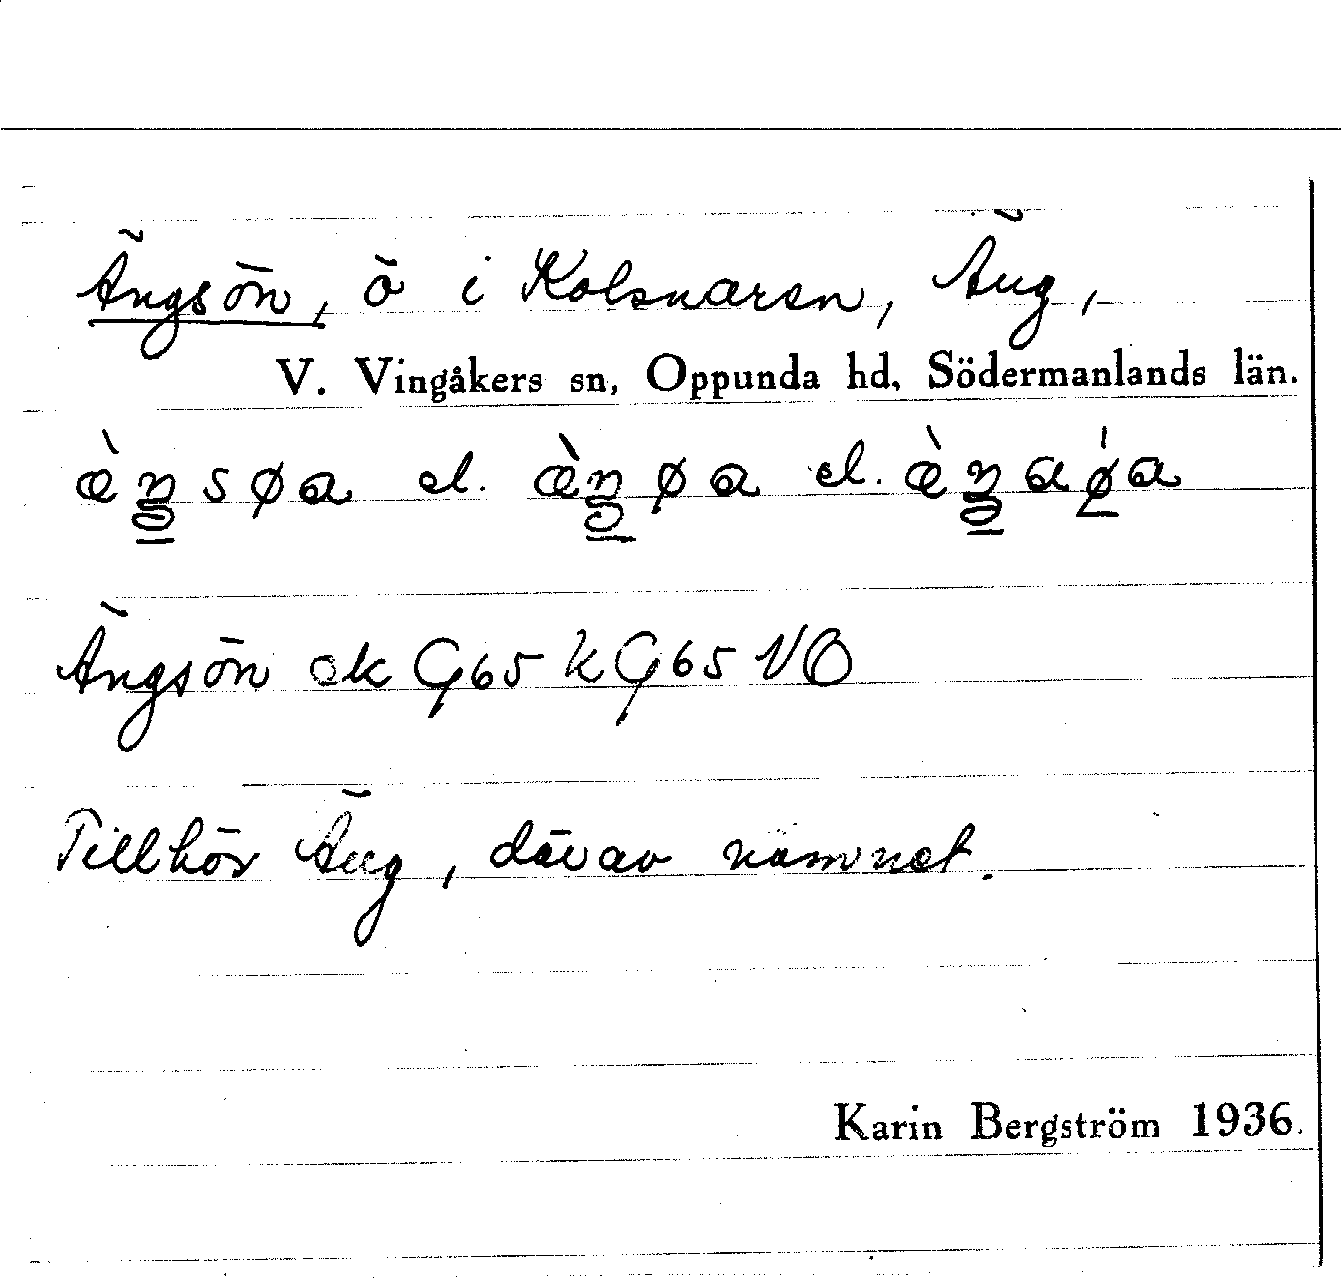 Ängsön, ö i Kolsnaren, Äng,
V. Vingåkers sn, Oppunda hd, Södermanlands län.
æ̀ŋsøa el. æ̀ŋøa el. æ̀ŋaǿa
Ängsön ek G65 kG65 VO
Tillhör Äng, därav namnet.
Karin Bergström 1936.